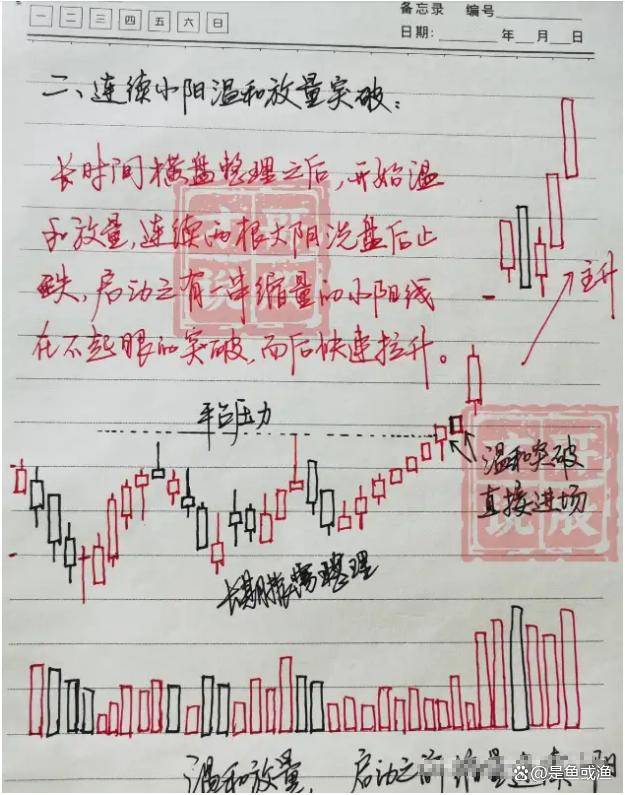 一 二 三 四 五 六 日
备忘录 编号
日期: 年 月 日
二、连续小阳温和放量突破:
长时间横盘整理之后,开始温
和放量,连续两根大阳洗盘后止
跌,启动之有一串缩量的小阳线
在不起眼的突破,而后快速拉升。
主升
平台压力
温和突破
直接进场
长期震荡整理
温和放量,启动之前缩量连续小阳
@是鱼或渔